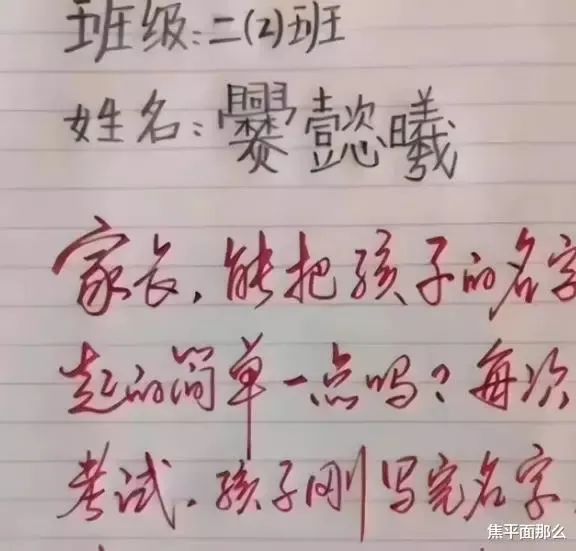 班级:二(2)班
姓名:爨懿曦
家长,能把孩子的名字
起的简单一点吗?每次
考试.孩子刚写完名字
焦平面那么